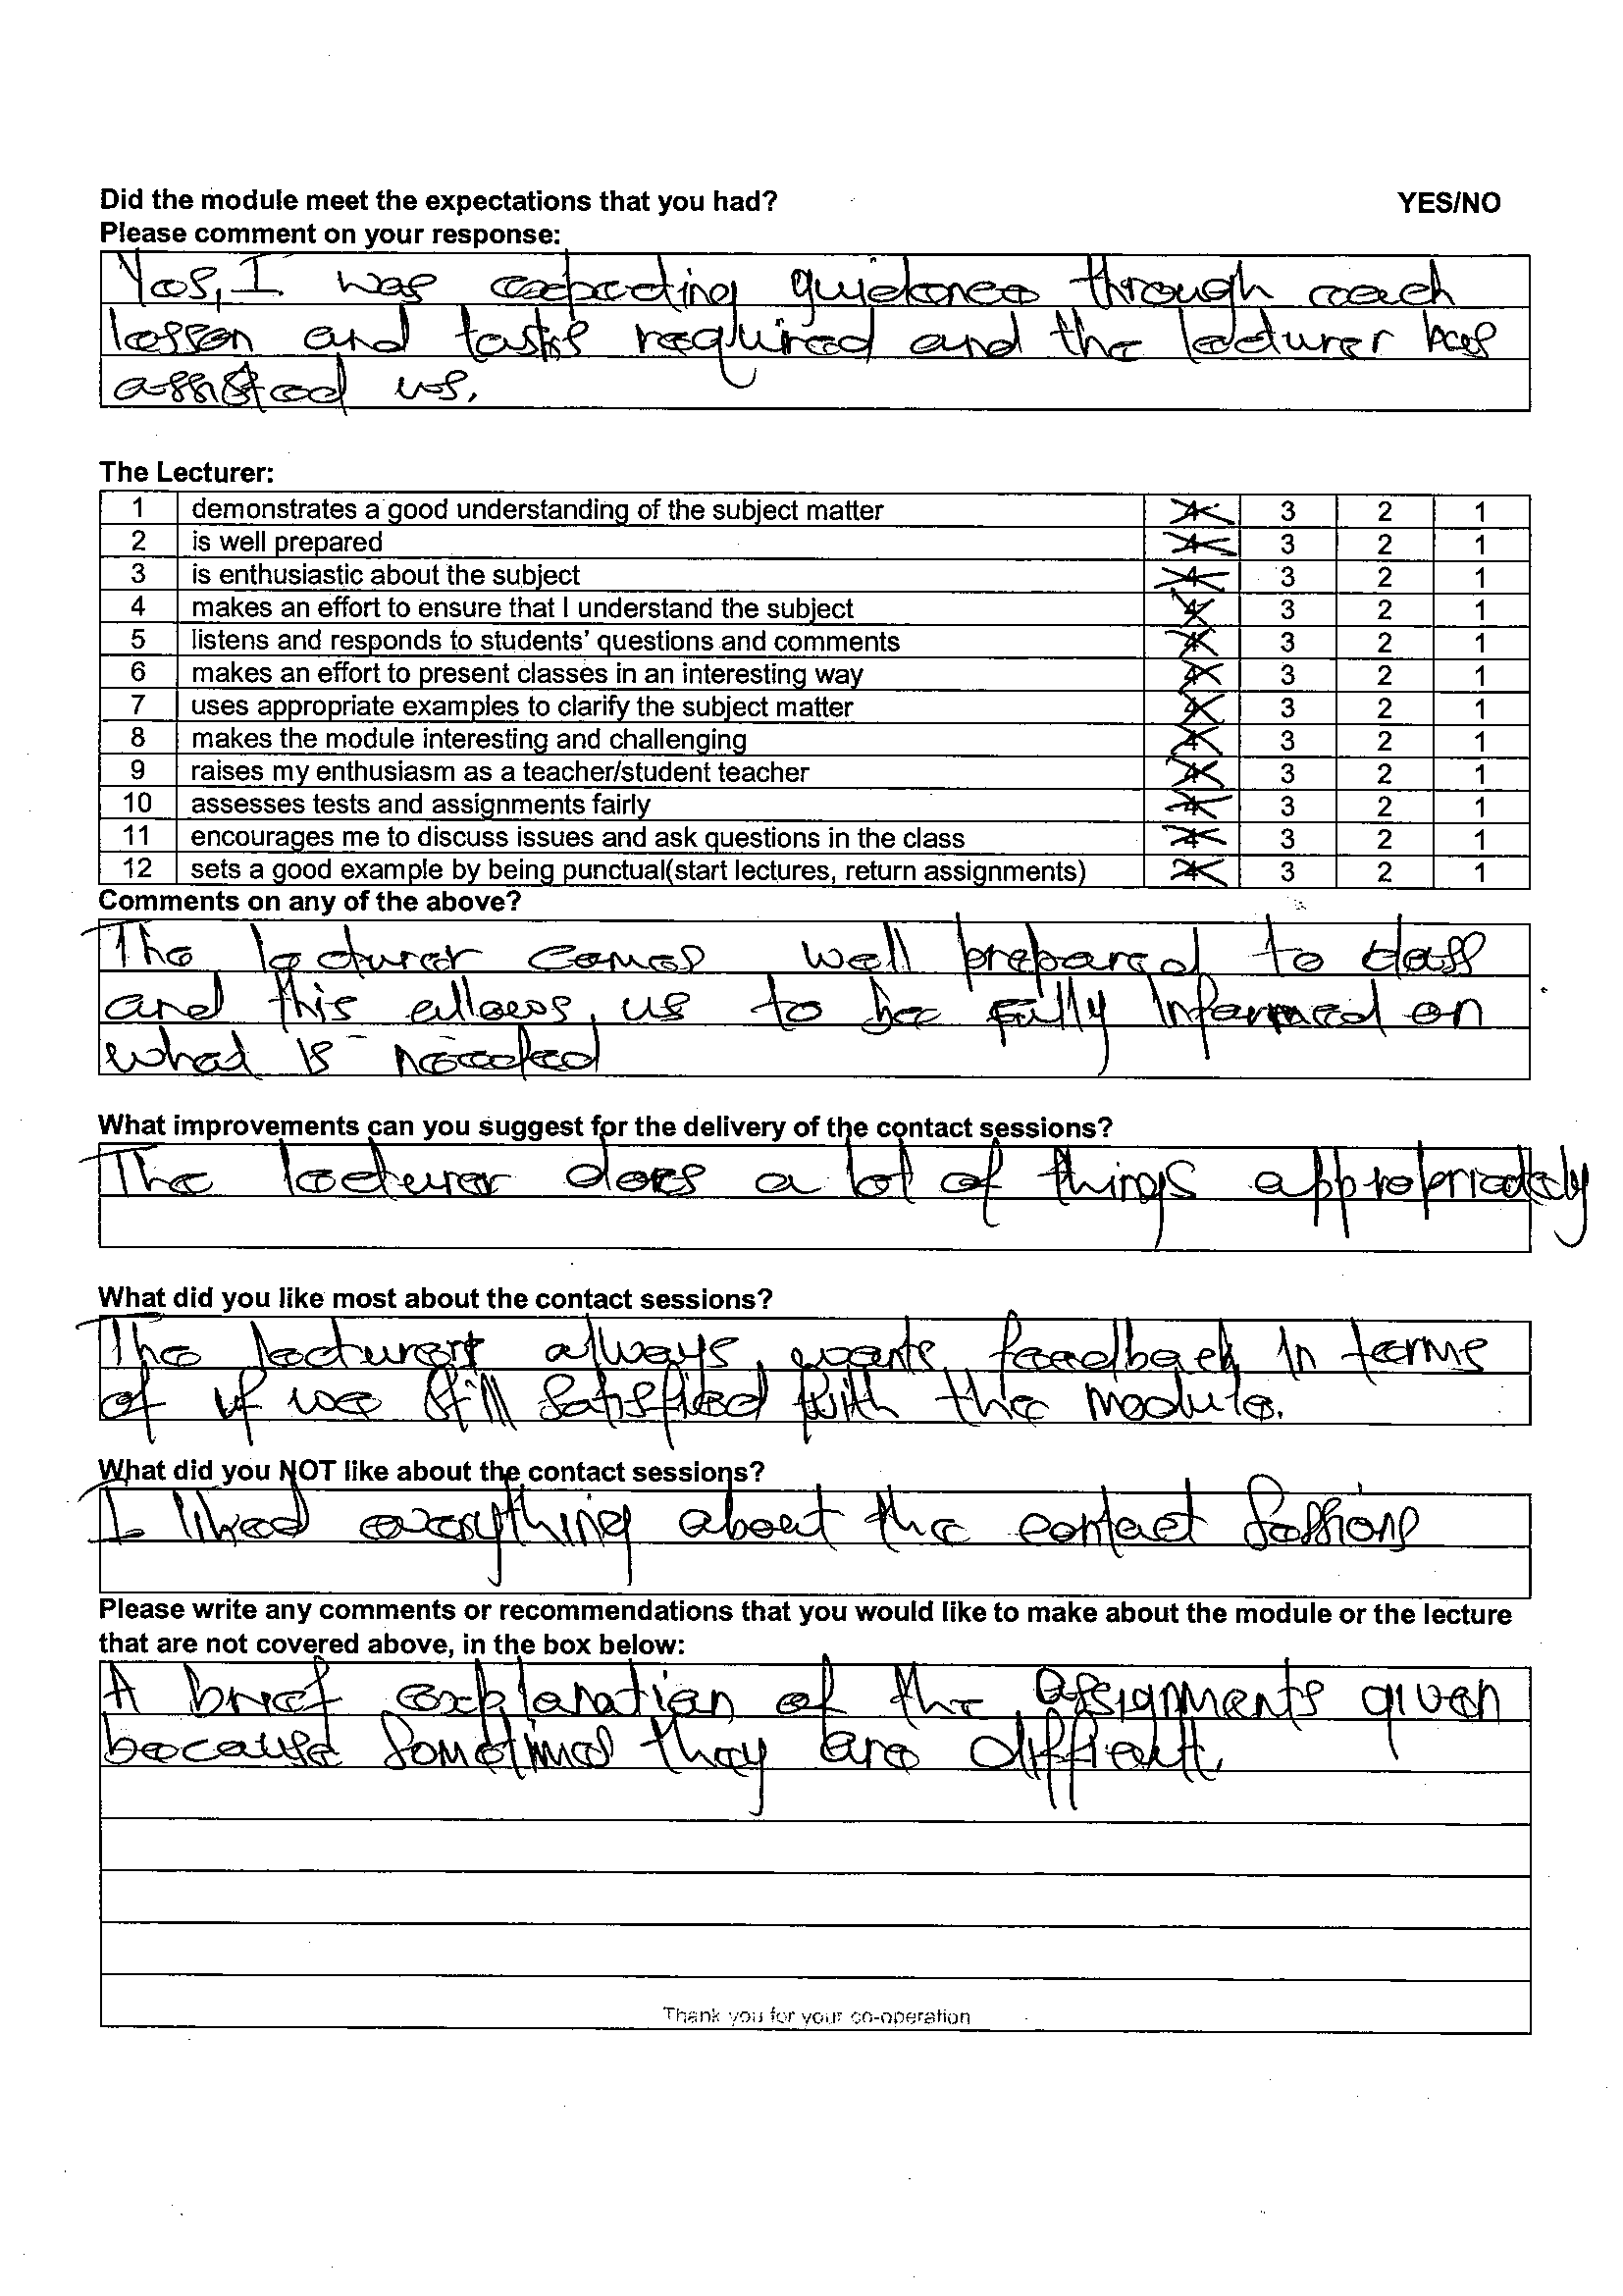 Did the module meet the expectations that you had? YES/NO
Please comment on your response:
Yes, I was expecting guidance through each
lesson and tasks required and the lecturer has
assisted us.
The Lecturer:
1 demonstrates a good understanding of the subject matter 4 3 2 1
2 is well prepared 4 3 2 1
3 is enthusiastic about the subject 4 3 2 1
4 makes an effort to ensure that I understand the subject 4 3 2 1
5 listens and responds to students' questions and comments 4 3 2 1
6 makes an effort to present classes in an interesting way 4 3 2 1
7 uses appropriate examples to clarify the subject matter 4 3 2 1
8 makes the module interesting and challenging 4 3 2 1
9 raises my enthusiasm as a teacher/student teacher 4 3 2 1
10 assesses tests and assignments fairly 4 3 2 1
11 encourages me to discuss issues and ask questions in the class 4 3 2 1
12 sets a good example by being punctual(start lectures, return assignments) 4 3 2 1
Comments on any of the above?
The lecturer comes well prepared to class
and this allows us to be fully informed on
what is needed
What improvements can you suggest for the delivery of the contact sessions?
The lecturer does a lot of things appropriately
What did you like most about the contact sessions?
The lecturer always wants feedback in terms
of if we still satisfied with the module.
What did you NOT like about the contact sessions?
I liked everything about the contact sessions
Please write any comments or recommendations that you would like to make about the module or the lecture
that are not covered above, in the box below:
A brief explanation of the assignments given
because sometimes they are difficult.
Thank you for your co-operation